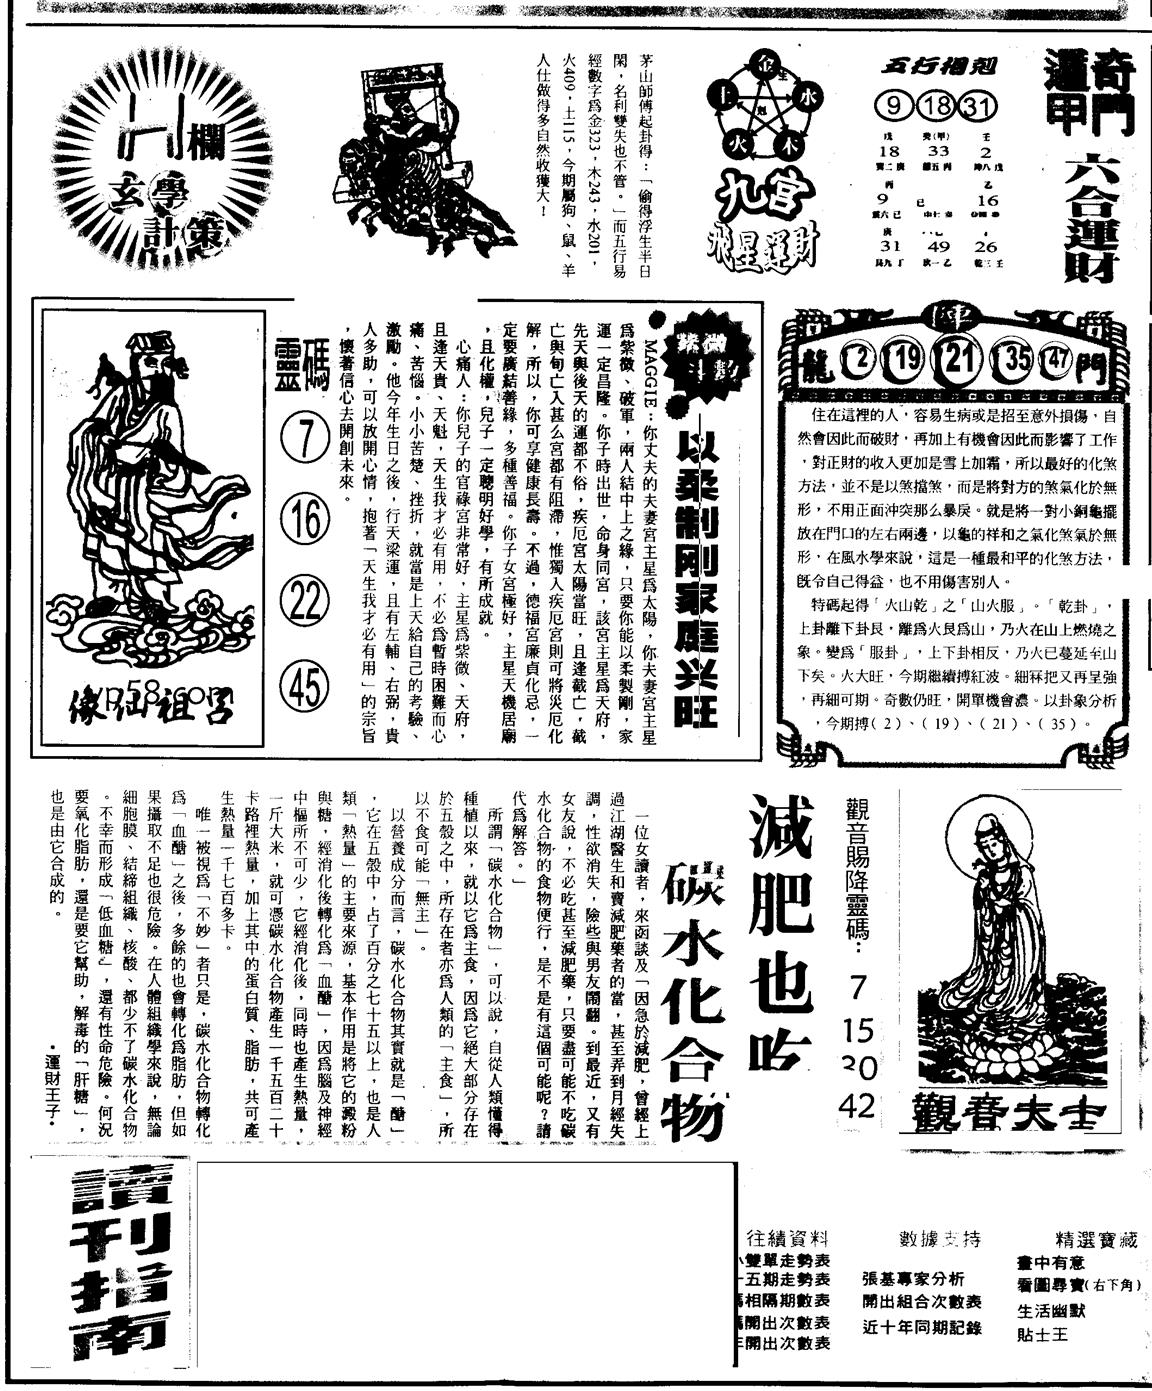 奇門
遁甲
六合運財
五行相剋
9 18 31
戊 癸(甲) 壬
18 33 2
丙 乙
9 己 16
庚
31 49 26
金
水
木
火
土
生
剋
九宮
飛星運財
茅山師傅起卦得：「偷得浮生半日
閑，名利雙失也不管。」而五行易
經數字為金323，木243，水201，
火409，土115，今期屬狗、鼠、羊
人仕做得多自然收獲大！
欄
玄學
計策
陣
龍 2 19 21 35 47 門
住在這裡的人，容易生病或是招至意外損傷，自
然會因此而破財，再加上有機會因此而影響了工作
，對正財的收入更加是雪上加霜，所以最好的化煞
方法，並不是以煞擋煞，而是將對方的煞氣化於無
形，不用正面沖突那么暴戾。就是將一對小銅龜擺
放在門口的左右兩邊，以龜的祥和之氣化煞氣於無
形，在風水學來說，這是一種最和平的化煞方法，
既令自己得益，也不用傷害別人。
特碼起得「火山乾」之「山火服」。「乾卦」，
上卦離下卦艮，離為火艮為山，乃火在山上燃燒之
象。變為「服卦」，上下卦相反，乃火已蔓延至山
下矣。火大旺，今期繼續搏紅波。細冧把又再呈強
，再細可期。奇數仍旺，開單機會濃。以卦象分析
，今期搏（2）、（19）、（21）、（35）。
紫微
斗數
以柔制剛家庭兴旺
MAGGIE：你丈夫的夫妻宮主星為太陽，你夫妻宮主星
為紫微、破軍，兩人結中上之緣，只要你能以柔製剛，家
運一定昌隆。你子時出世，命身同宮，該宮主星為天府，
先天與後天的運都不俗，疾厄宮太陽當旺，且逢截亡，截
亡與旬亡入甚么宮都有阻滯，惟獨人疾厄宮則可將災厄化
解，所以，你可享健康長壽。不過，德福宮廉貞化忌，一
定要廣結善緣，多種善福。你子女宮極好，主星天機居廟
，且化權，兒子一定聰明好學，有所成就。
心痛人：你兒子的官祿宮非常好，主星為紫微、天府，
且逢天貴、天魁，天生我才必有用，不必為暫時困難而心
痛、苦惱。小小苦楚、挫折，就當是上天給自己的考驗、
激勵。他今年生日之後，行天梁運，且有左輔、右弼，貴
人多助，可以放開心情，抱著「天生我才必有用」的宗旨
，懷著信心去開創未來。
靈碼
7
16
22
45
呂祖仙像
觀音大士
觀音賜降靈碼：
7
15
20
42
減肥也吃
碳水化合物
一位女讀者，來函談及「因急於減肥，曾經上
過江湖醫生和賣減肥藥者的當，甚至弄到月經失
調，性欲消失，險些與男友鬧翻。到最近，又有
女友說，不必吃甚至減肥藥，只要盡可能不吃碳
水化合物的食物便行，是不是有這個可能呢？請
代為解答。」
所謂「碳水化合物」，可以說，自從人類懂得
種植以來，就以它為主食，因為它絕大部分存在
於五穀之中，所存在者亦為人類的「主食」，所
以不食可能「無主」。
以營養成分而言，碳水化合物其實就是「醣」
，它在五穀中，占了百分之七十五以上，也是人
類「熱量」的主要來源，基本作用是將它的澱粉
與糖，經消化後轉化為「血醣」，因為腦及神經
中樞所不可少，它經消化後，同時也產生熱量，
一斤大米，就可憑碳水化合物產生一千五百二十
卡路裡熱量，加上其中的蛋白質、脂肪，共可產
生熱量一千七百多卡。
唯一被視為「不妙」者只是，碳水化合物轉化
為「血醣」之後，多餘的也會轉化為脂肪，但如
果攝取不足也很危險。在人體組織學來說，無論
細胞膜、結締組織、核酸、都少不了碳水化合物
。不幸而形成「低血糖」，還有性命危險。何況
要氧化脂肪，還是要它幫助，解毒的「肝糖」，
也是由它合成的。
•運財王子•
讀刊指南
往績資料
雙單走勢表
五期走勢表
相隔期數表
開出次數表
開出次數表
數據支持
張基專家分析
開出組合次數表
近十年同期記錄
精選寶藏
畫中有意
看圖尋寶(右下角)
生活幽默
貼士王